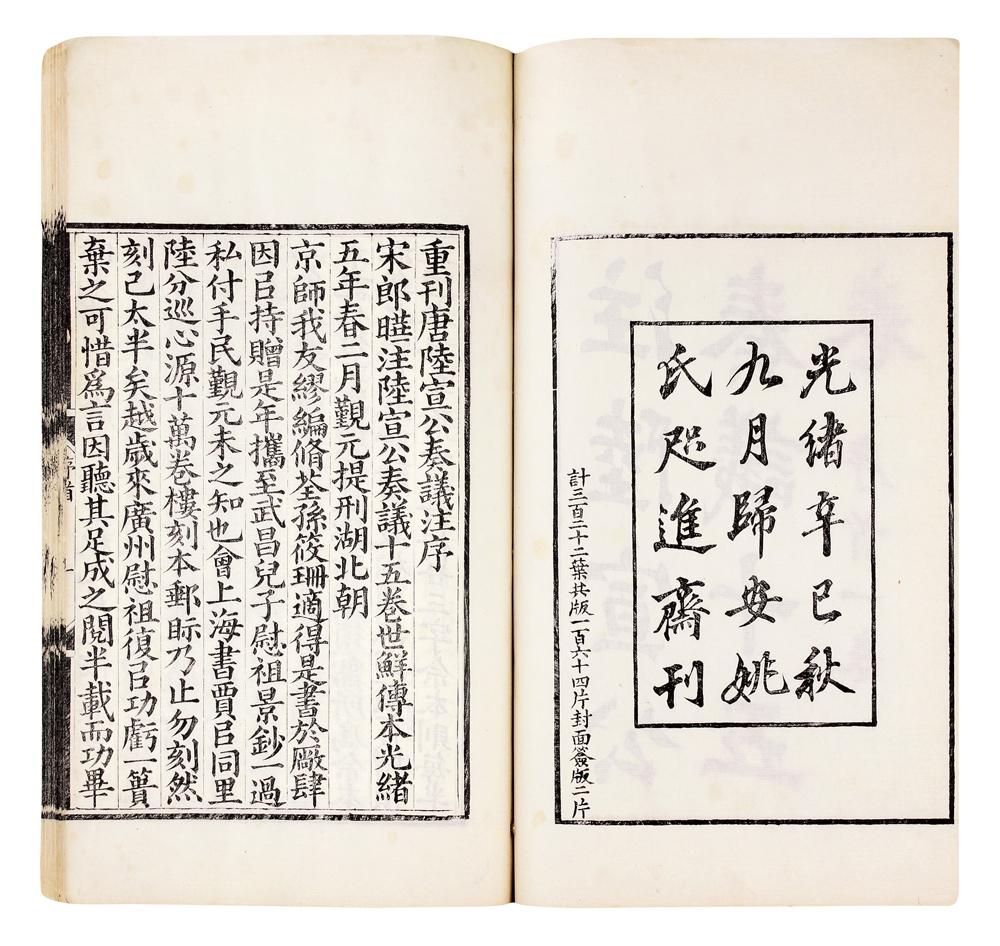 光緒辛巳秋
九月歸安姚
氏咫進齋刊
計三百二十二葉共版一百六十四片封面簽版二片
重刊唐陸宣公奏議注序
宋郎㬢注陸宣公奏議十五卷世鮮傳本光緒
五年春二月覲元提刑湖北朝
京師我友繆編脩荃孫筱珊適得是書於厰肆
因㠯持贈是年攜至武昌兒子慰祖景鈔一過
私付手民覲元未之知也會上海書賈㠯同里
陸分巡心源十萬卷樓刻本郵眎乃止勿刻然
刻已太半矣越歲來廣州慰祖復㠯功虧一簣
棄之可惜爲言因聽其足成之閱半載而功畢
序